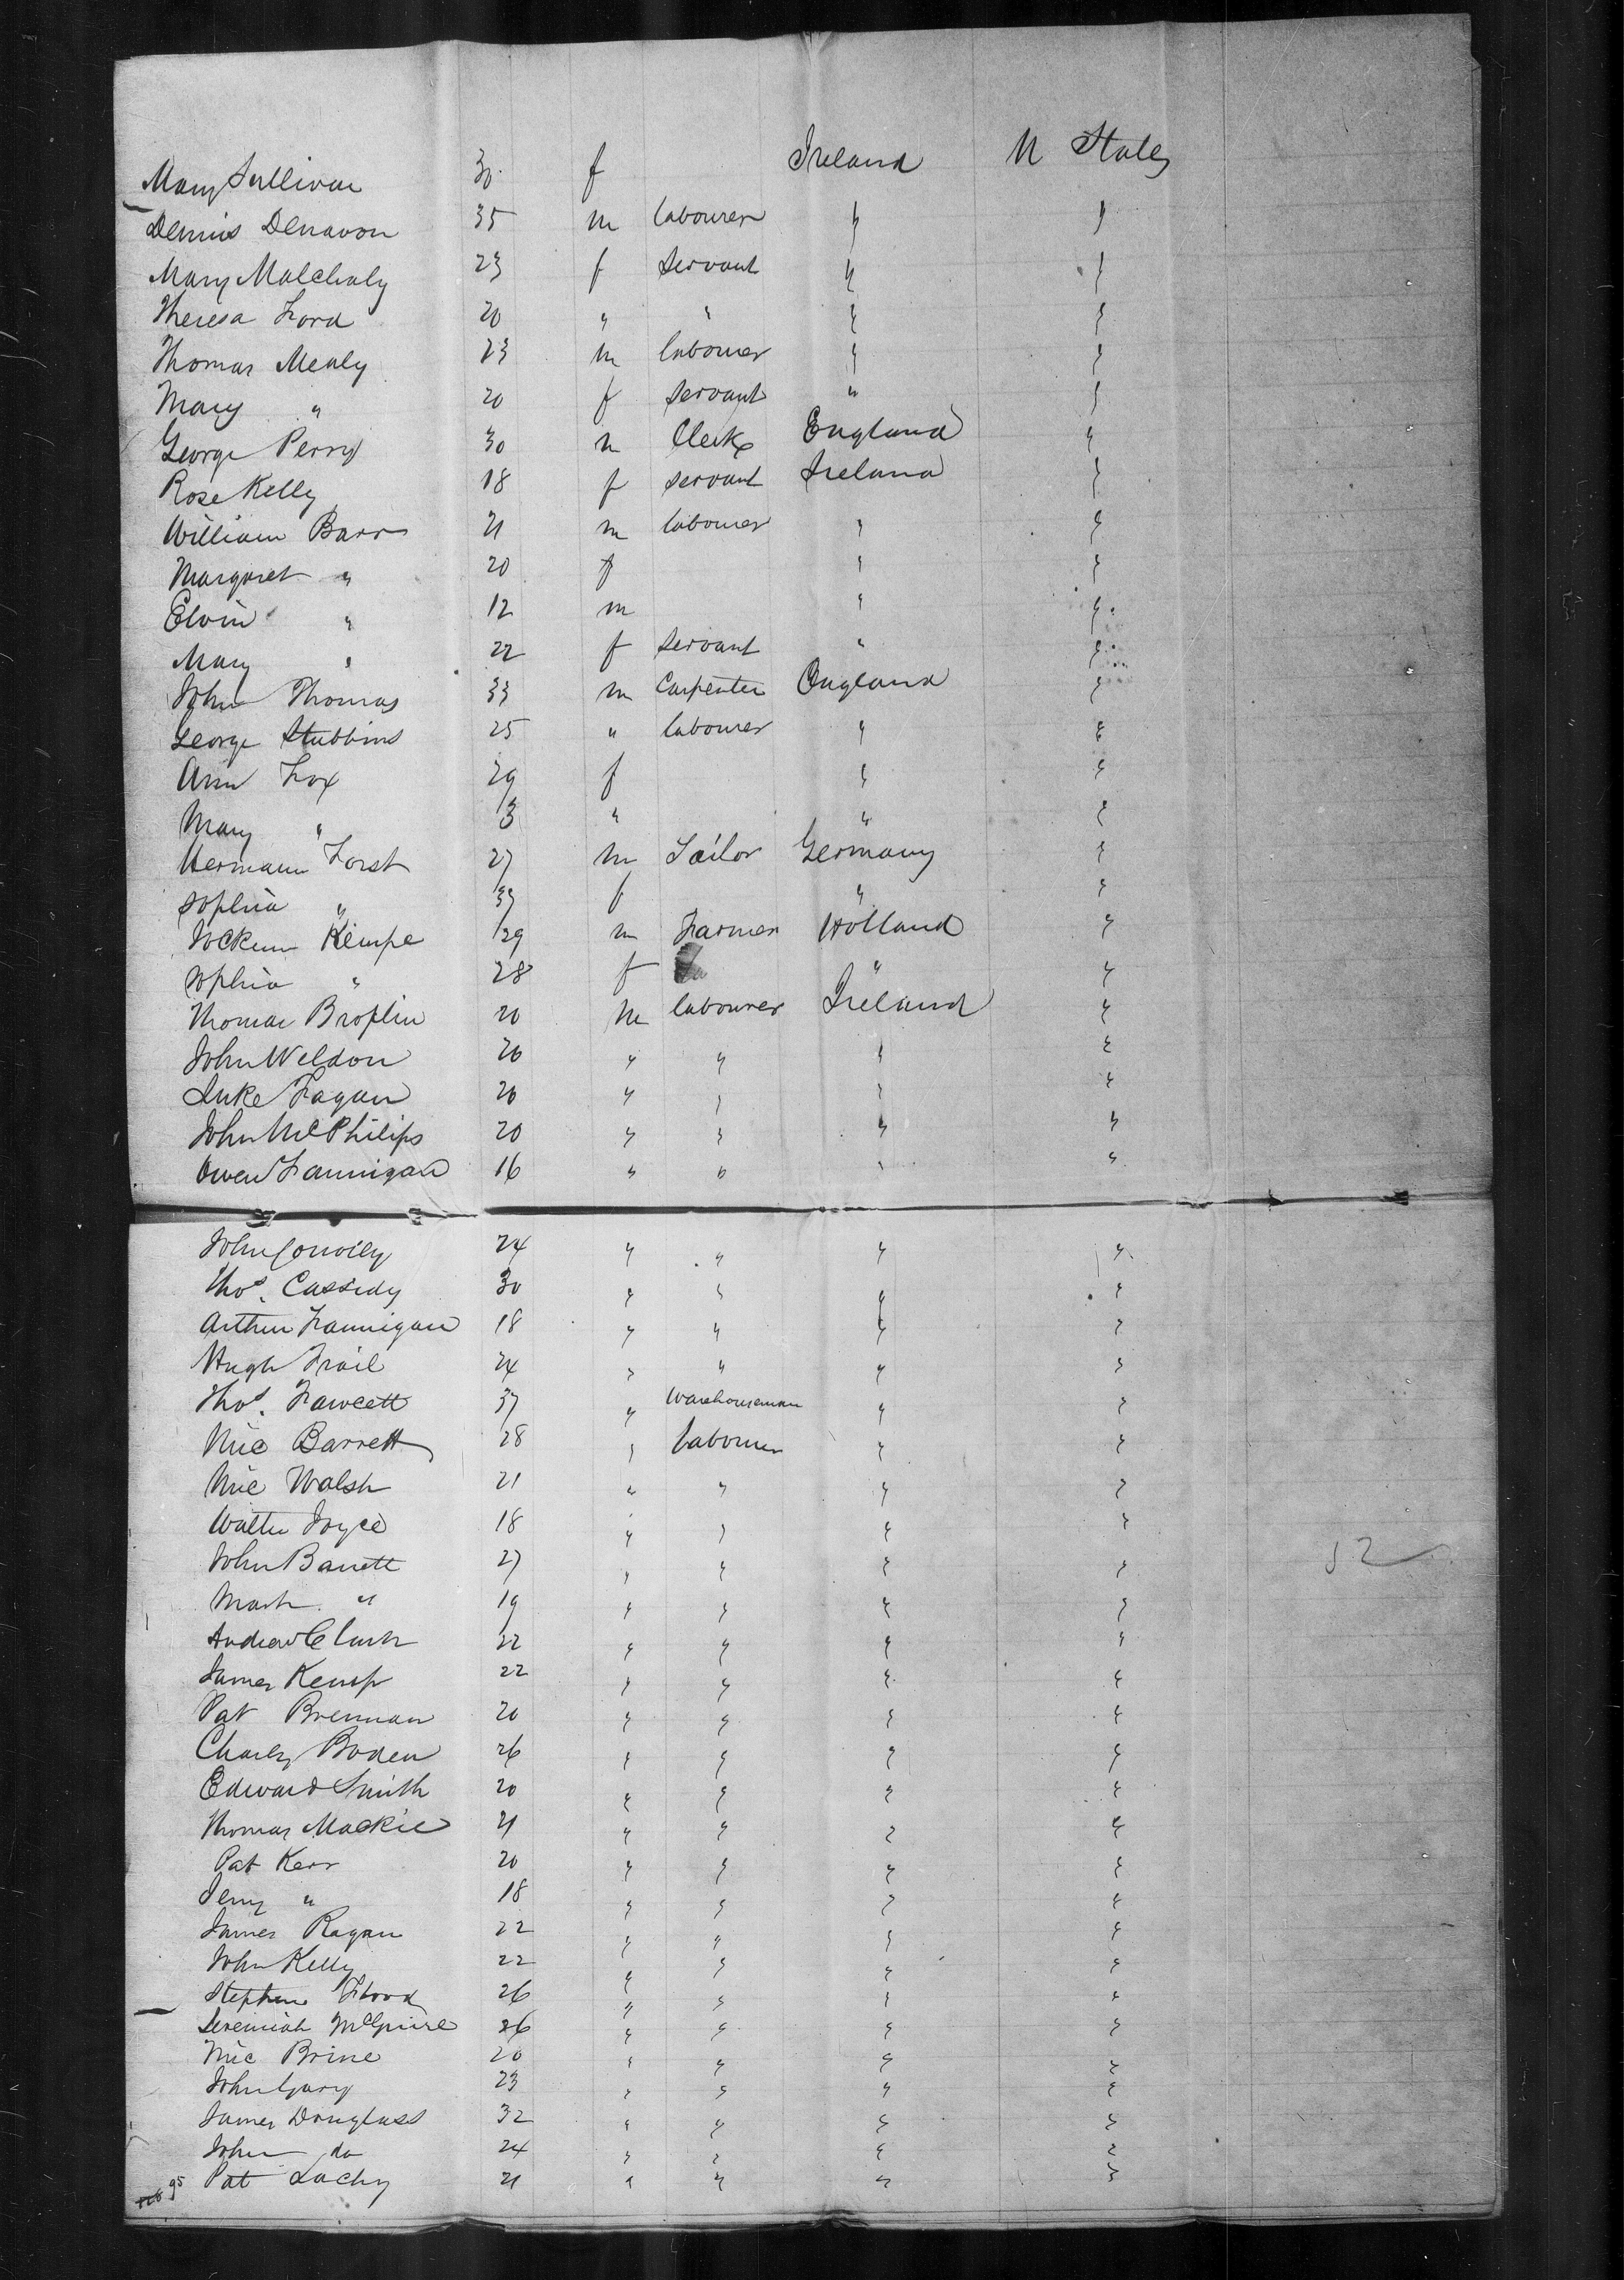 Mary Sullivan 30 f Ireland U States
Dennis Denavon 35 m labourer " "
Mary Malchaly 23 f Servant " "
Theresa Ford 20 " " " "
Thomas Mealy 23 m labourer " "
Mary " 20 f Servant " "
George Perry 30 m Clerk England "
Rose Kelly 18 f servant Ireland "
William Barr 21 m labourer " "
Margaret " 20 f " "
Elvin " 12 m " "
Mary " 22 f Servant " "
John Thomas 33 m Carpenter England "
George Stubbins 25 " labourer " "
Ann Fox 29 f " "
Mary " 3 " " "
Hermann Forst 27 m Tailor Germany "
Sophia " 39 f " "
Kempe 29 m Farmer Holland "
Sophia " 28 f " "
Thomas Broplin 20 m labourer Ireland "
John Weldon 20 " " " "
Luke Fagan 20 " " " "
John McPhilips 20 " " " "
Owen Fannigan 16 " " " "
John Convily 24 " " " "
Thos. Cassidy 30 " " " "
Arthur Fannigan 18 " " " "
Hugh Trail 24 " " " "
Thos. Fawcett 37 " Warehouseman " "
Mic Barrett 28 " Labourer " "
Mic Walsh 21 " " " "
Walter Joyce 18 " " " "
John Barrett 27 " " " "
Mark " 19 " " " "
Andrew Clark 22 " " " "
James Kemp 22 " " " "
Pat Brennan 20 " " " "
Charles Boden 26 " " " "
Edward Smith 20 " " " "
Thomas Mackie 21 " " " "
Pat Kerr 20 " " " "
Jerry " 18 " " " "
James Ragan 22 " " " "
John Kelly 22 " " " "
Stephen Flood 26 " " " "
Jeremiah McGuire 26 " " " "
Mic Brine 20 " " " "
John Gary 23 " " " "
James Douglass 32 " " " "
John do 24 " " " "
95 Pat Lachy 21 " " " "
52